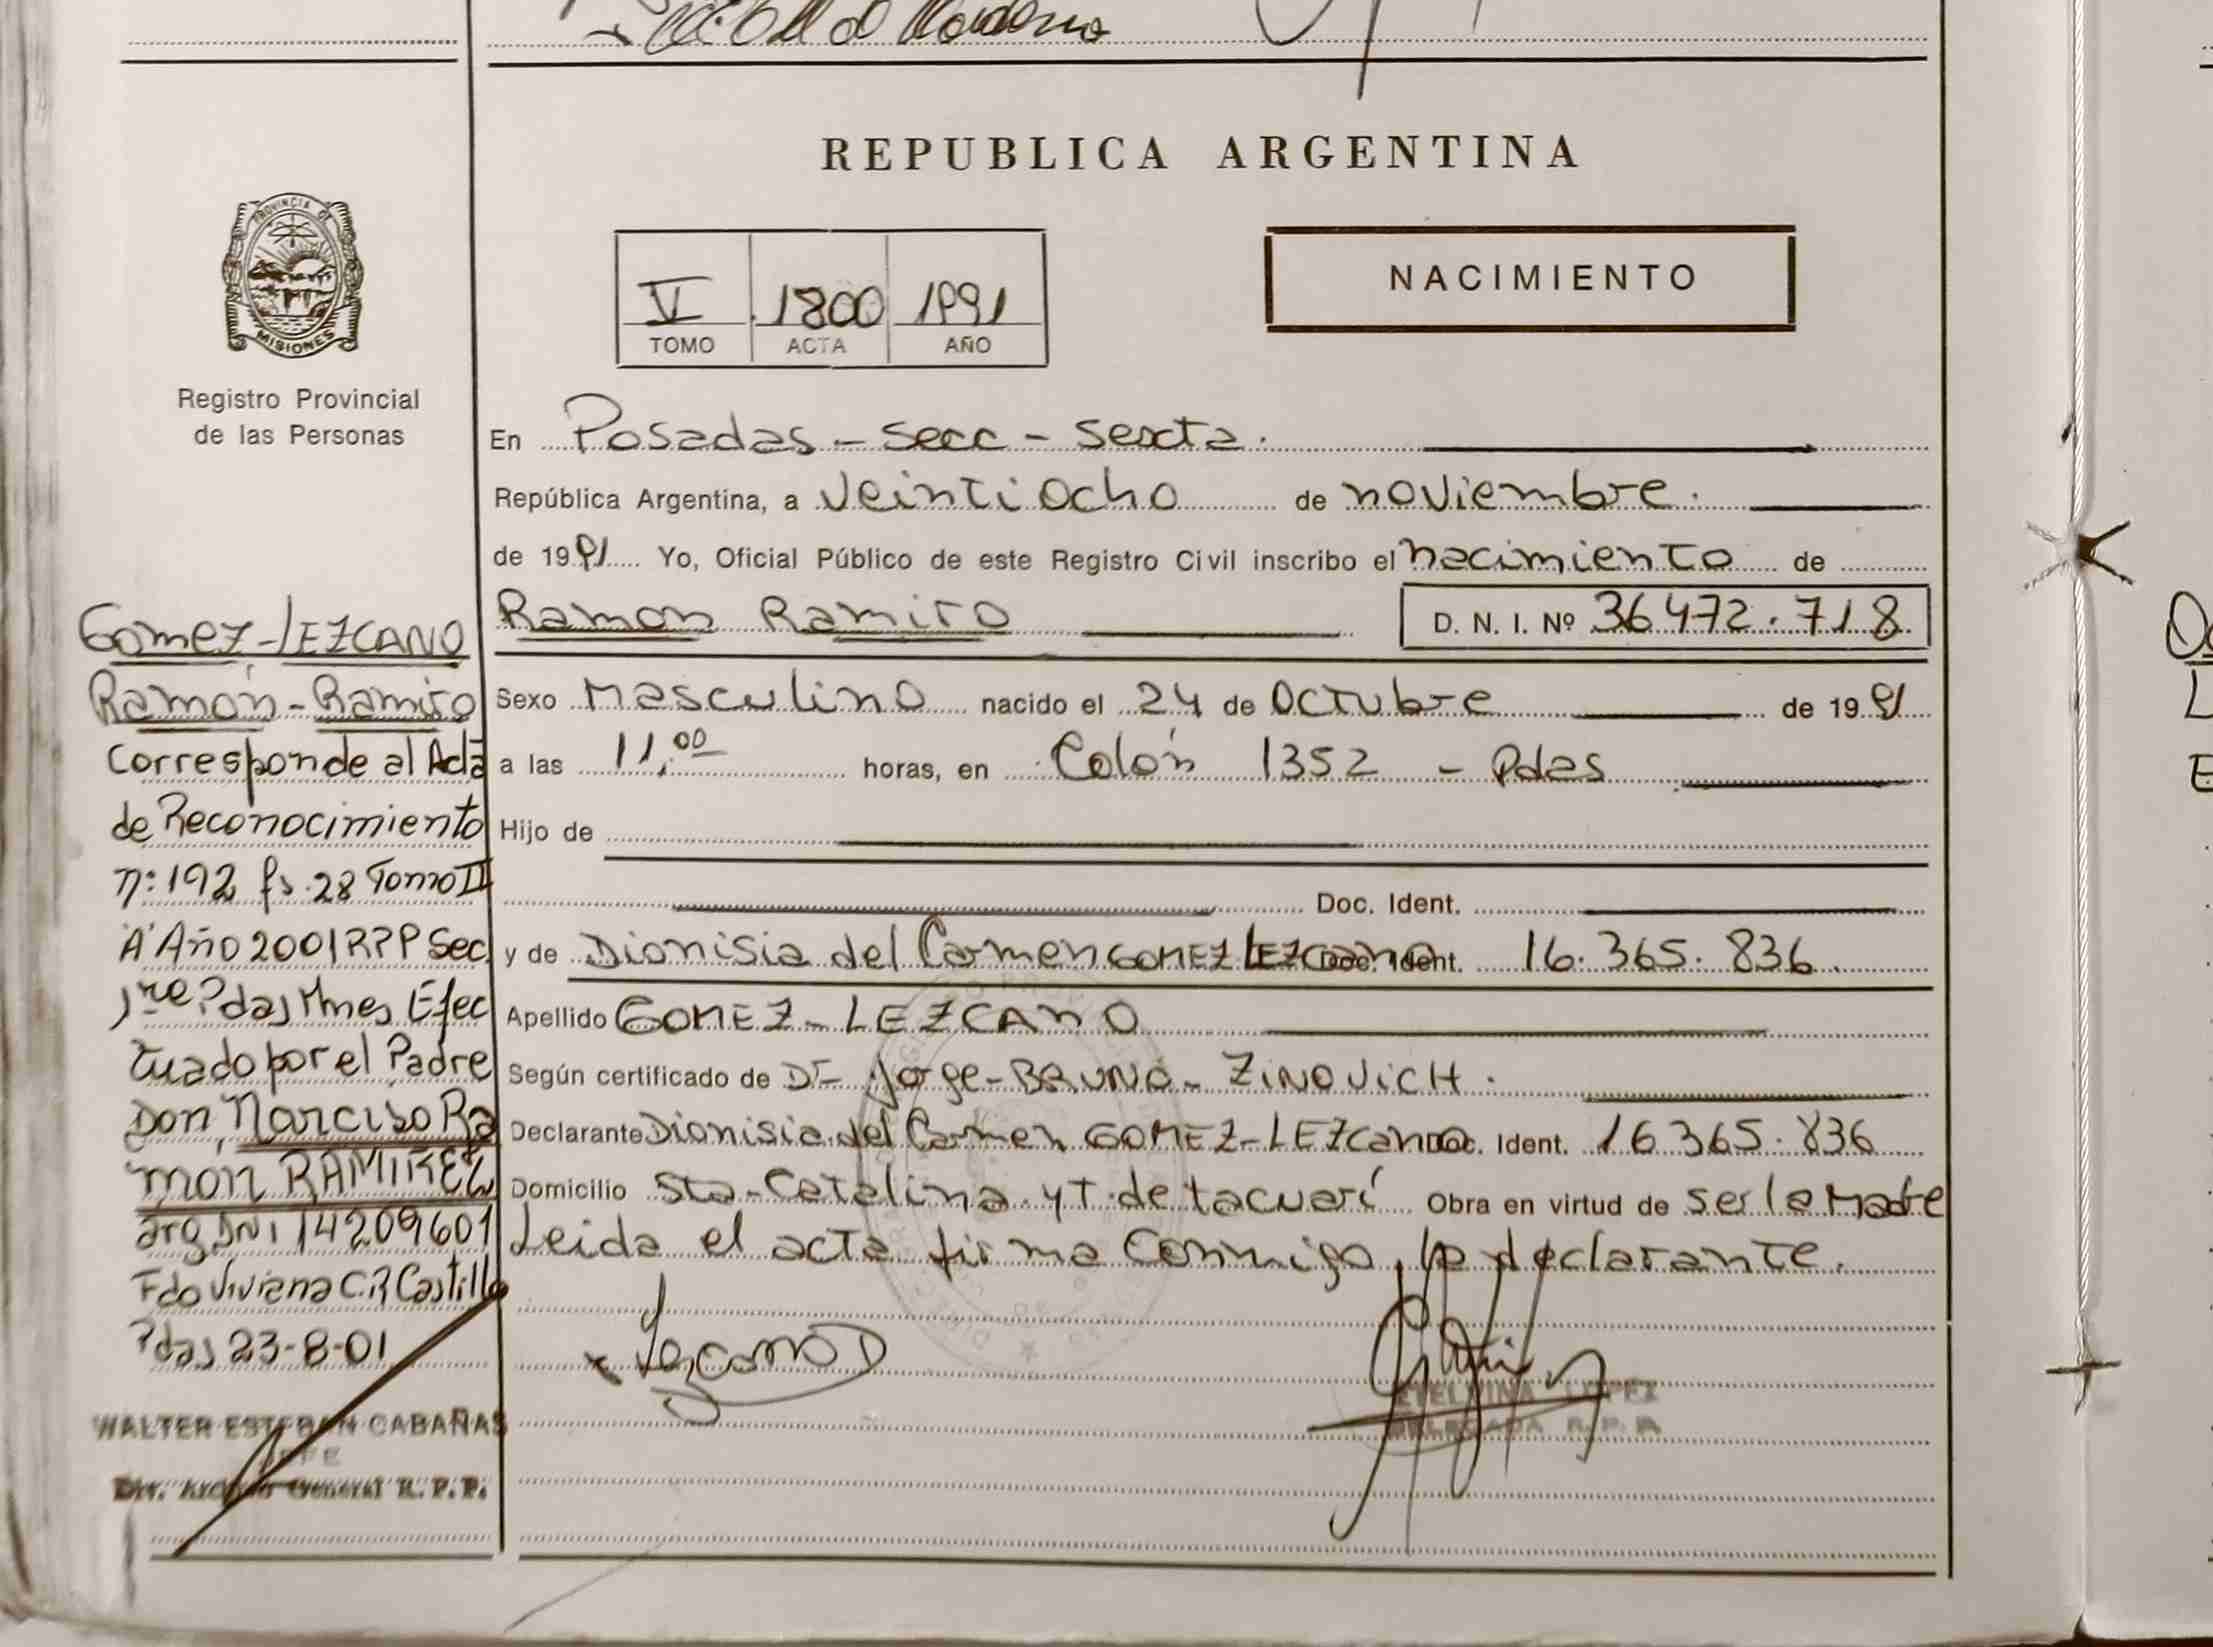 REPUBLICA ARGENTINA
PROVINCIA DE
MISIONES
Registro Provincial
de las Personas
V 1800 1991
TOMO ACTA AÑO
NACIMIENTO
En Posadas - Secc - Sexta.
República Argentina, a Veintiocho de noviembre.
de 1991 Yo, Oficial Público de este Registro Civil inscribo el nacimiento de
Ramon Ramiro D. N. I. Nº 36472.718
Sexo Masculino nacido el 24 de Octubre de 1991
a las 11,00 horas, en Colón 1352 - Pdas
Hijo de
Doc. Ident.
y de Dionisia del Carmen GOMEZ LEZCANO Doc. Ident. 16.365.836.
Apellido GOMEZ - LEZCANO
Según certificado de Dr Jorge - BRUNO - ZINOVICH.
Declarante Dionisia del Carmen GOMEZ - LEZCANO Doc. Ident. 16.365.836
Domicilio Sta - Catalina y T. de tacuarí Obra en virtud de ser la Madre
Leida el acta firma Conmigo, la declarante.
Lezcano D
ETELVINA LOPEZ
DELEGADA R. P. P.
Gomez - LEZCANO
Ramón - Ramiro
Corresponde al Acta
de Reconocimiento
n: 192 fs. 28 Tomo II
A' Año 2001 RPP Sec.
1re Pdas Mnes Efec
tuado por el Padre
Don, Narciso Ra
mon RAMIREZ
arg DNI 14209601
Fdo Viviana C.R Castillo
Pdas 23-8-01
WALTER ESTEBAN CABAÑAS
JEFE
Dir. Archivo General R. P. P.